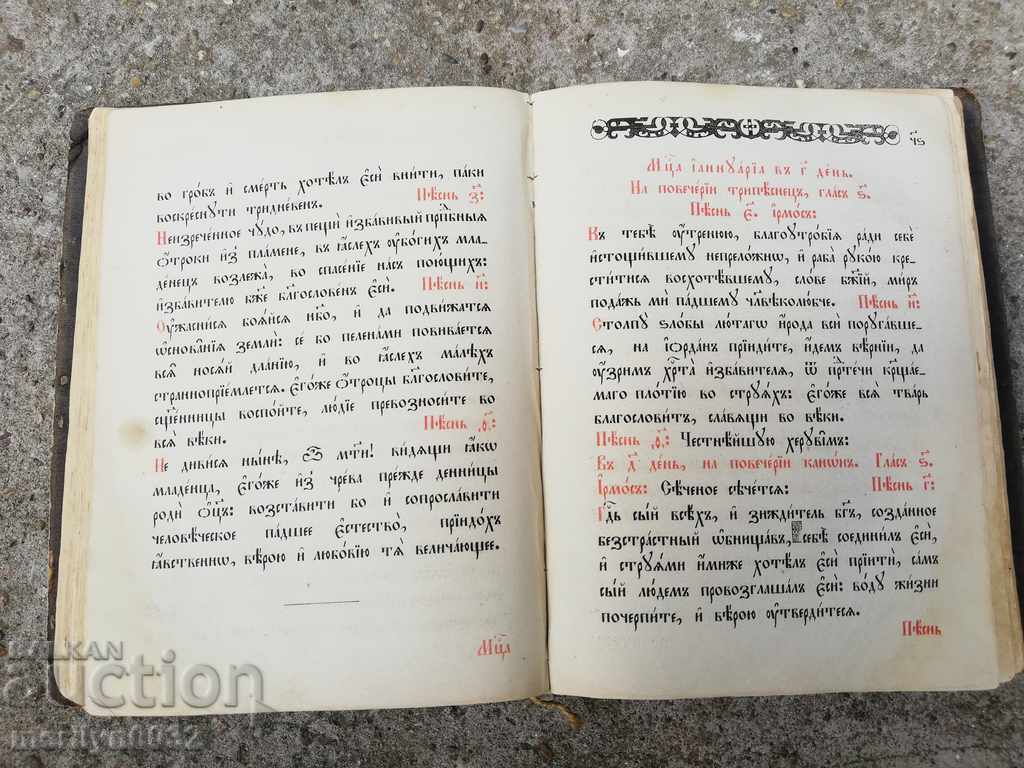 во гро́бъ и҆ сме́рть хотѣ́лъ є҆сѝ вни́ти, па́ки
воскресну́ти тридне́венъ.
Пѣ́снь з҃:
Неизрече́нное чꙋ́до, въ пещѝ и҆зба́вивый прⷣпбныѧ
ѻ҆́троки и҆з̾ пла́мене, въ ꙗ҆́слехъ ᲂу҆бо́гихъ мла-
де́нецъ возлежа̀, во спасе́нїе на́съ пою́щихъ:
и҆зба́вителю бж҃е блгⷭ҇ове́нъ є҆сѝ.
Пѣ́снь и҃:
Оу҆жасни́сѧ боѧ́йсѧ нб҃о, и҆ да подви́жатсѧ
ѡ҆снова̑нїѧ землѝ: се́ бо пелена́ми повива́етсѧ
всѧ̑ носѧ́й дла́нїю, и҆ во ꙗ҆́слехъ ма́лѣхъ
страннопрїе́млетсѧ. є҆го́же ѻ҆́троцы блгⷭ҇ови́те,
сщ҃е́нницы воспо́йте, лю́дїе превозноси́те во
всѧ̑ вѣ́ки.
Пѣ́снь ѳ҃:
Не диви́сѧ ны́нѣ, ѽ мт҃и! ви́дѧщи ꙗ҆́кѡ
младе́нца, є҆го́же и҆з̾ чре́ва пре́жде денни́цы
родѝ ѻ҆ц҃ъ: возста́вити бо и҆ сопросла́вити
человѣ́ческое па́дшее є҆стество̀, прїидо́хъ
ꙗ҆́вственнѡ, вѣ́рою и҆ любо́вїю тѧ̀ велича́ющее.
Мцⷭ҇а
ч҃ѕ
Мцⷭ҇а і҆аннꙋа́рїа въ г҃ де́нь.
На повече́рїи трипѣ́снецъ, гла́съ ѕ҃.
Пѣ́снь є҃. і҆рмо́съ:
Къ тебѣ̀ ᲂу҆́тренюю, благоꙋтро́бїѧ ра́ди себѐ
и҆стощи́вшемꙋ непрело́жнѡ, и҆ раба̀ рꙋко́ю кре-
сти́тисѧ восхотѣ́вшемꙋ, сло́ве бж҃їй, ми́ръ
пода́ждь мѝ па́дшемꙋ чл҃вѣколю́бче.
Пѣ́снь и҃:
Столпꙋ̀ ѕло́бы лю́тагѡ и҆́рода всѝ порꙋга́вше-
сѧ, на і҆ѻрда́нъ прїиди́те, и҆́демъ вѣ́рнїи, да
ᲂу҆́зримъ хрⷭ҇та̀ и҆зба́вителѧ, ѿ прⷣте́чи крⷭ҇ща́е-
маго пло́тїю во стрꙋѧ́хъ: є҆го́же всѧ̀ тва́рь
благослови́тъ, сла́вѧщи во вѣ́ки.
Пѣ́снь ѳ҃: Честнѣ́йшꙋю херꙋві̑мъ:
Въ д҃ де́нь, на повече́рїи канѡ́нъ. Гла́съ ѕ҃.
І҆рмо́съ: Сѣ́ченое сѣче́тсѧ: Пѣ́снь г҃:
Гдⷭ҇ь сы́й всѣ́хъ, и҆ зижди́тель бг҃ъ, созда́нное
безстра́стный ѡ҆бнища́въ, себѣ̀ соедини́лъ є҆сѝ,
и҆ стрꙋѧ́ми и҆́миже хотѣ́лъ є҆сѝ прїитѝ, са́мъ
сы́й лю́демъ провозглаша́лъ є҆сѝ: во́дꙋ жи́зни
почерпи́те, и҆ вѣ́рою ᲂу҆твердите́сѧ.
Пѣ́снь
BALKAN
auction
merilyn0032